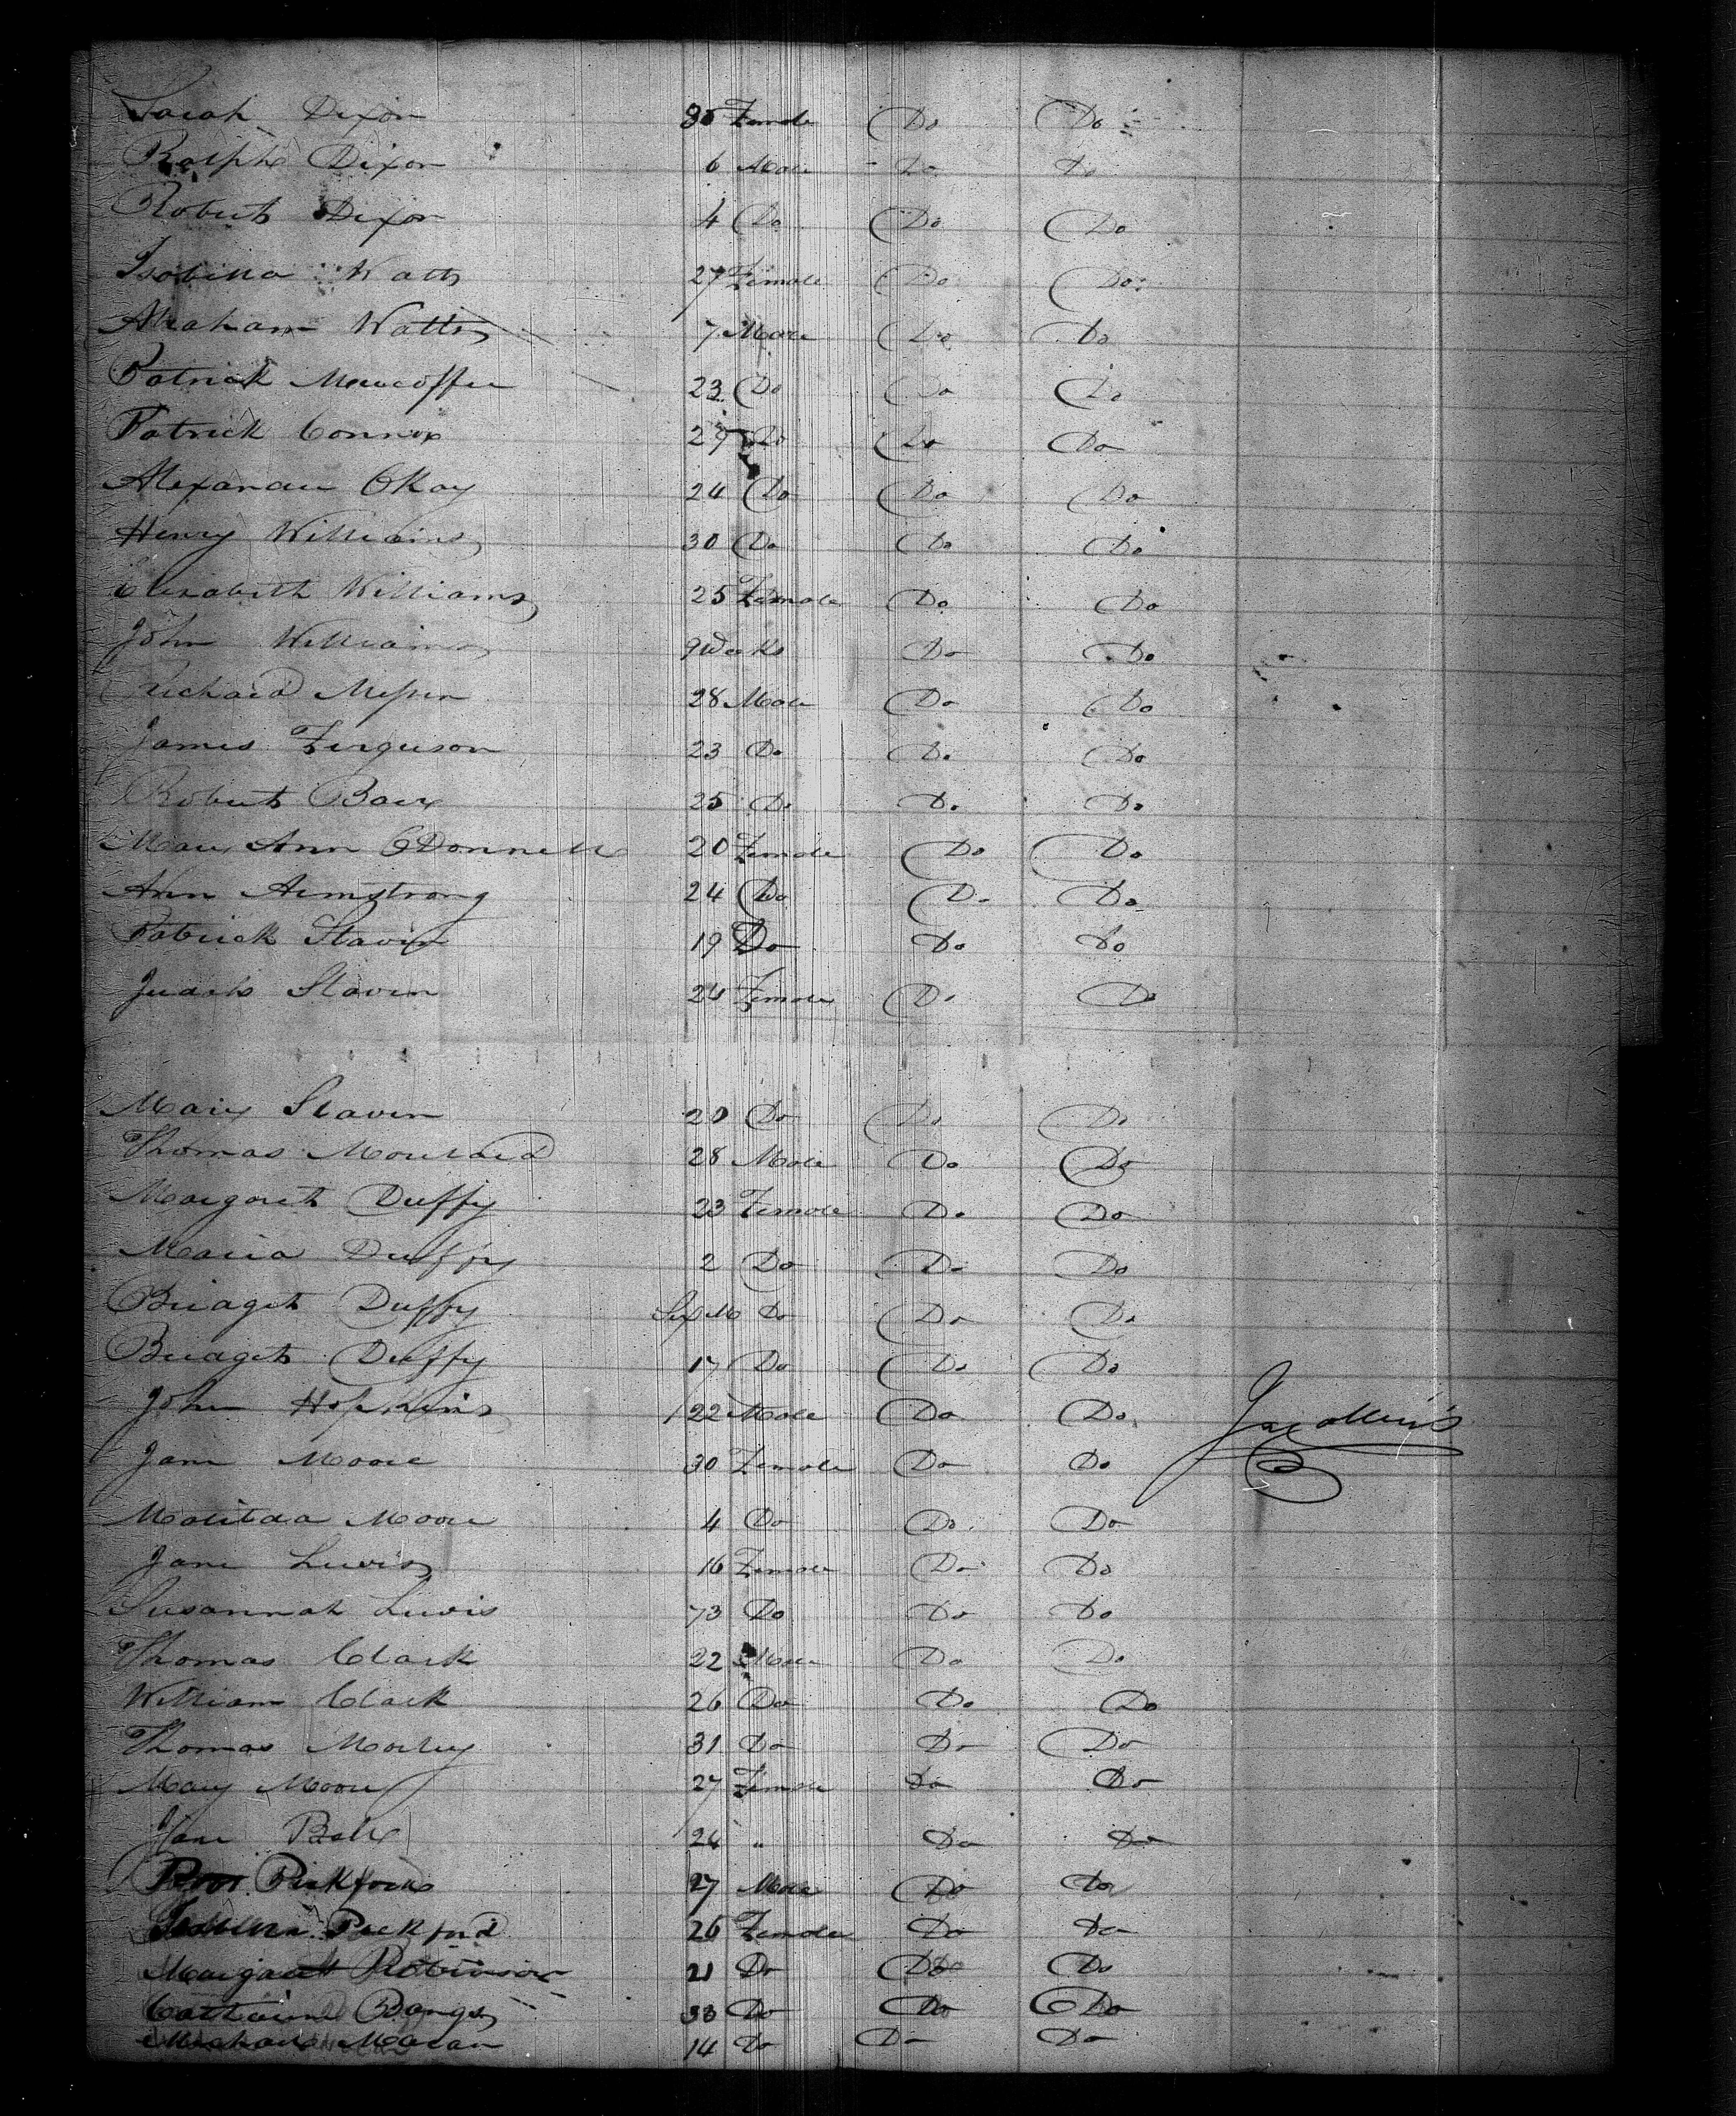 Sarah Dixon 30 Female Do Do
Ralph Dixon 6 Male Do Do
Robert Dixon 4 Do Do Do
Isabella Watts 27 Female Do Do
Abraham Watts 7 Male Do Do
Patrick 23 Do Do Do
Patrick Connor 29 Do Do Do
Alexander OKay 24 Do Do Do
Henry Williams 30 Do Do Do
Elisabeth Williams 25 Female Do Do
John Williams 9 Weeks Do Do
Richard 28 Male Do Do
James Ferguson 23 Do Do Do
Robert 25 Do Do Do
Mary Ann ODonnell 20 Female Do Do
Ann Armstrong 24 Do Do Do
Patrick Slavin 19 Do Do Do
Judith Slavin 24 Female Do Do
Mary Slavin 20 Do Do Do
Thomas 28 Male Do Do
Margaret Duffy 23 Female Do Do
Maria Duffy 2 Do Do Do
Bridget Duffy Six M Do Do Do
Bridget Duffy 17 Do Do Do
John Hopkins 22 Male Do Do
Jane Moore 30 Female Do Do
Matilda Moore 4 Do Do Do
Jane Lewis 16 Female Do Do
Susannah Lewis 73 Do Do Do
Thomas Clark 22 Male Do Do
William Clark 26 Do Do Do
Thomas Morley 31 Do Do Do
Mary Moore 27 Female Do Do
Jane Bell 24 " Do Do
Pickford 27 Male Do Do
Pickford 26 Female Do Do
Margaret Robinson 21 Do Do Do
Catharine Bangs 33 Do Do Do
Michael Moran 14 Do Do Do